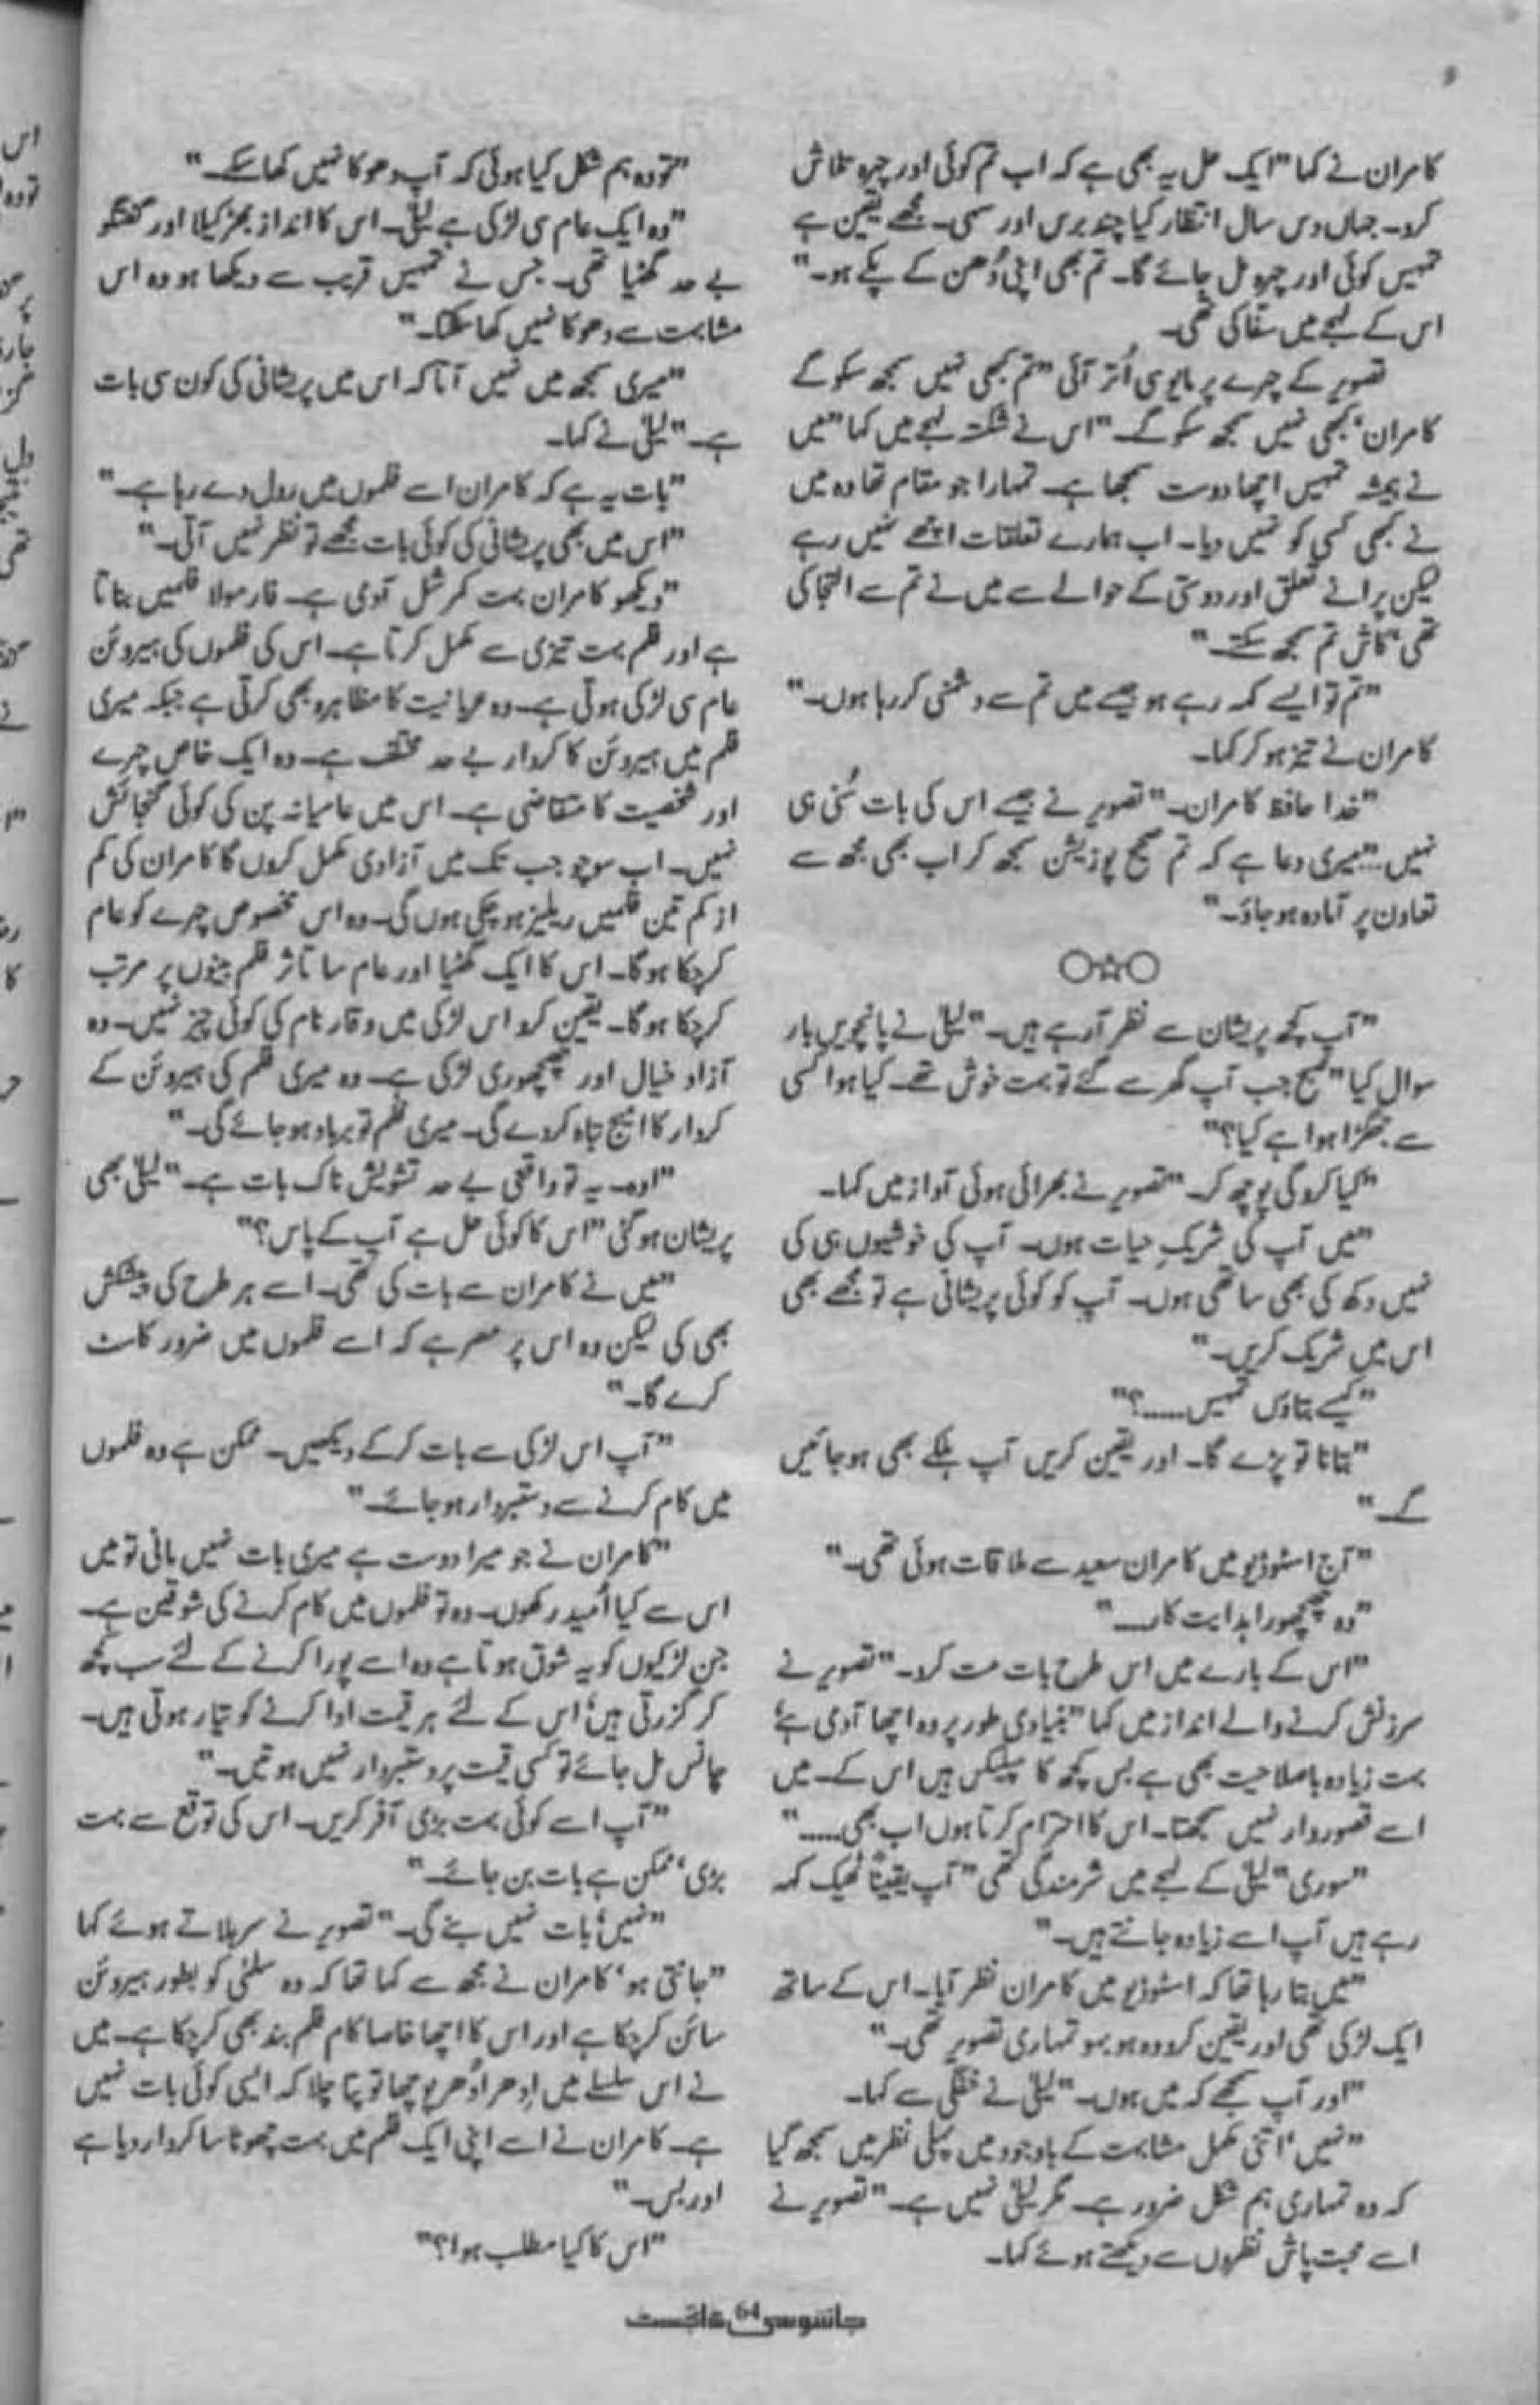 کامران نے کہا "ایک حل یہ بھی ہے کہ اب تم کوئی اور چہرہ تلاش
کرو۔ جہاں دس سال انتظار کیا چند برس اور سہی۔ مجھے یقین ہے
تمہیں کوئی اور چہرہ مل جائے گا۔ تم بھی اپنی دُھن کے پکے ہو۔"
اس کے لہجے میں سفاکی تھی۔
تصویر کے چہرے پر مایوسی اُتر آئی "تم کبھی نہیں سمجھ سکو گے
کامران' کبھی نہیں سمجھ سکو گے۔" اس نے شکستہ لہجے میں کہا "میں
نے ہمیشہ تمہیں اچھا دوست سمجھا ہے۔ تمہارا جو مقام تھا وہ میں
نے کبھی کسی کو نہیں دیا۔ اب ہمارے تعلقات اچھے نہیں رہے
لیکن پرانے تعلق اور دوستی کے حوالے سے میں نے تم سے التجا کی
تھی' کاش تم سمجھ سکتے۔"
"تم تو ایسے کہہ رہے ہو جیسے میں تم سے دشمنی کر رہا ہوں۔"
کامران نے تیز ہو کر کہا۔
"خدا حافظ کامران۔" تصویر نے جیسے اس کی بات سُنی ہی
نہیں... "میری دعا ہے کہ تم صحیح پوزیشن سمجھ کر اب بھی مجھ سے
تعاون پر آمادہ ہو جاؤ۔"
○☆○
"آپ کچھ پریشان سے نظر آ رہے ہیں۔" لیلیٰ نے پانچویں بار
سوال کیا "صبح جب آپ گھر سے گئے تو بہت خوش تھے۔ کیا ہوا کسی
سے جھگڑا ہوا ہے کیا؟"
"کیا کرو گی پوچھ کر۔" تصویر نے بھرائی ہوئی آواز میں کہا۔
"میں آپ کی شریکِ حیات ہوں۔ آپ کی خوشیوں ہی کی
نہیں دکھ کی بھی ساتھی ہوں۔ آپ کو کوئی پریشانی ہے تو مجھے بھی
اس میں شریک کریں۔"
"کیسے بتاؤں تمہیں.....؟"
"بتانا تو پڑے گا۔ اور یقین کریں آپ ہلکے بھی ہو جائیں
گے۔"
"آج اسٹوڈیو میں کامران سعید سے ملاقات ہوئی تھی۔"
"وہ چھچھورا ہدایت کار۔"
"اس کے بارے میں اس طرح بات مت کرو۔" تصویر نے
سرزنش کرنے والے انداز میں کہا "بنیادی طور پر وہ اچھا آدمی ہے'
بہت زیادہ باصلاحیت بھی ہے بس کچھ کا مپلیکس ہیں اس کے۔ میں
اسے قصوروار نہیں سمجھتا۔ اس کا احترام کرتا ہوں اب بھی....."
"سوری" لیلیٰ کے لہجے میں شرمندگی تھی "آپ یقیناً ٹھیک کہہ
رہے ہیں آپ اسے زیادہ جانتے ہیں۔"
"میں بتا رہا تھا کہ اسٹوڈیو میں کامران نظر آیا۔ اس کے ساتھ
ایک لڑکی تھی اور یقین کرو وہ ہو بہو تمہاری تصویر تھی۔"
"اور آپ سمجھے کہ میں ہوں۔" لیلیٰ نے خفگی سے کہا۔
"نہیں' اتنی مکمل مشابہت کے باوجود میں پہلی نظر میں سمجھ گیا
کہ وہ تمہاری ہم شکل ضرور ہے۔ مگر لیلیٰ نہیں ہے۔" تصویر نے
اسے محبت پاش نظروں سے دیکھتے ہوئے کہا۔
"تو وہ ہم شکل کیا ہوئی کہ آپ دھوکا نہیں کھا سکے۔"
"وہ ایک عام سی لڑکی ہے لیلیٰ۔ اس کا انداز بھڑکیلا اور گفتگو
بے حد گھٹیا تھی۔ جس نے تمہیں قریب سے دیکھا ہو وہ اس
مشابہت سے دھوکا نہیں کھا سکتا۔"
"میری سمجھ میں نہیں آتا کہ اس میں پریشانی کی کون سی بات
ہے۔" لیلیٰ نے کہا۔
"بات یہ ہے کہ کامران اسے فلموں میں رول دے رہا ہے۔"
"اس میں بھی پریشانی کی کوئی بات مجھے تو نظر نہیں آتی۔"
"دیکھو کامران بہت کمرشل آدمی ہے۔ فارمولا فلمیں بناتا
ہے اور فلم بہت تیزی سے مکمل کرتا ہے۔ اس کی فلموں کی ہیروئن
عام سی لڑکی ہوتی ہے۔ وہ عریانیت کا مظاہرہ بھی کرتی ہے جبکہ میری
فلم میں ہیروئن کا کردار بے حد مختلف ہے۔ وہ ایک خاص چہرے
اور شخصیت کا متقاضی ہے۔ اس میں عامیانہ پن کی کوئی گنجائش
نہیں۔ اب سوچو جب تک میں آزادی مکمل کروں گا کامران کی کم
از کم تین فلمیں ریلیز ہو چکی ہوں گی۔ وہ اس مخصوص چہرے کو عام
کر چکا ہو گا۔ اس کا ایک گھٹیا اور عام سا تاثر فلم بینوں پر مرتب
کر چکا ہو گا۔ یقین کرو اس لڑکی میں وقار نام کی کوئی چیز نہیں۔ وہ
آزاد خیال اور چھچھوری لڑکی ہے۔ وہ میری فلم کی ہیروئن کے
کردار کا امیج تباہ کر دے گی۔ میری فلم تو برباد ہو جائے گی۔"
"اوہ۔ یہ تو واقعی بے حد تشویش ناک بات ہے۔" لیلیٰ بھی
پریشان ہو گئی "اس کا کوئی حل ہے آپ کے پاس؟"
"میں نے کامران سے بات کی تھی۔ اسے ہر طرح کی پیشکش
بھی کی لیکن وہ اس پر مصر ہے کہ اسے فلموں میں ضرور کاسٹ
کرے گا۔"
"آپ اس لڑکی سے بات کر کے دیکھیں۔ ممکن ہے وہ فلموں
میں کام کرنے سے دستبردار ہو جائے۔"
"کامران نے جو میرا دوست ہے میری بات نہیں مانی تو میں
اس سے کیا اُمید رکھوں۔ وہ تو فلموں میں کام کرنے کی شوقین ہے۔
جن لڑکیوں کو یہ شوق ہوتا ہے وہ اسے پورا کرنے کے لئے سب کچھ
کر گزرتی ہیں' اس کے لئے ہر قیمت ادا کرنے کو تیار ہوتی ہیں۔
چانس مل جائے تو کسی قیمت پر دستبردار نہیں ہوتیں۔"
"آپ اسے کوئی بہت بڑی آفر کریں۔ اس کی توقع سے بہت
بڑی' ممکن ہے بات بن جائے۔"
"نہیں' بات نہیں بنے گی۔" تصویر نے سر ہلاتے ہوئے کہا
"جانتی ہو' کامران نے مجھ سے کہا تھا کہ وہ سلمٰی کو بطور ہیروئن
سائن کر چکا ہے اور اس کا اچھا خاصا کام فلم بند بھی کر چکا ہے۔ میں
نے اس سلسلے میں اِدھر اُدھر پوچھا تو پتا چلا کہ ایسی کوئی بات نہیں
ہے۔ کامران نے اسے اپنی ایک فلم میں بہت چھوٹا سا کردار دیا ہے
اور بس۔"
"اس کا کیا مطلب ہوا؟"
جاسوسی 64 ڈائجسٹ